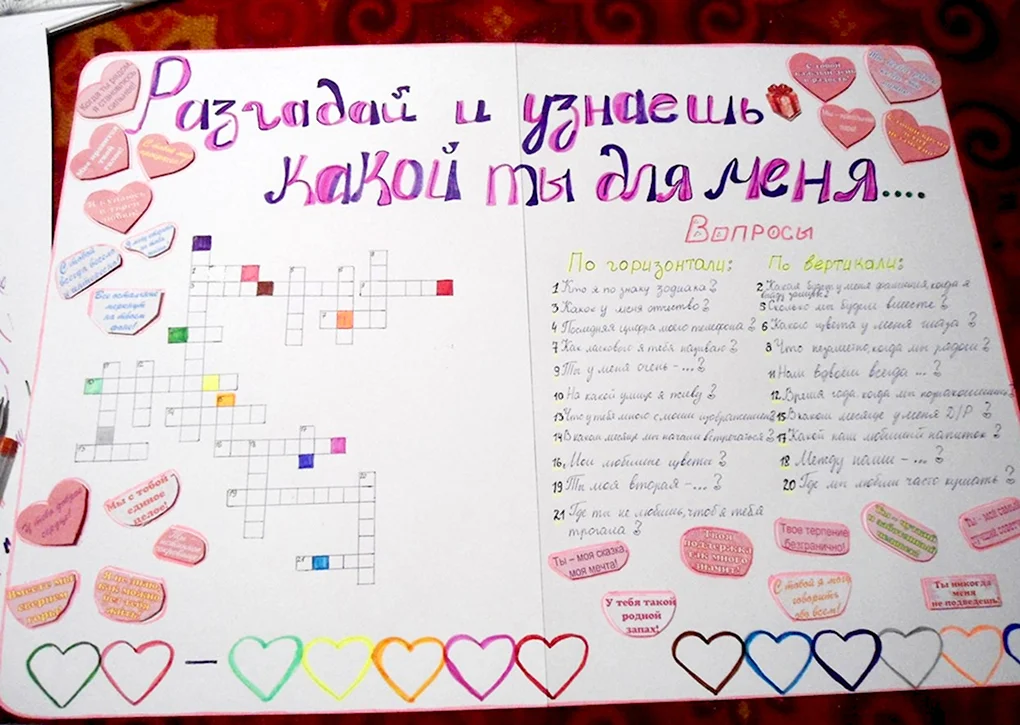 Разгадай и узнаешь
какой ты для меня....
Вопросы
По горизонтали:
1 Кто я по знаку зодиака?
3 Какое у меня отчество?
4 Последняя цифра моего телефона?
7 Как ласково я тебя называю?
9 Ты у меня очень - ...?
10 На какой улице я живу?
13 Что у тебя много с моим изображением?
14 В каком месяце мы начали встречаться?
16 Мои любимые цветы?
19 Ты моя вторая - ...?
21 Где ты не любишь, чтоб я тебя
трогала?
По вертикали:
2 Какая будет у меня фамилия, когда я
выйду замуж?
5 Сколько мы будем вместе?
6 Какого цвета у меня глаза?
8 Что незаметно, когда мы рядом?
11 Нам вдвоем всегда ...?
12 Время года, когда мы познакомились?
15 В каком месяце у меня Д/Р?
17 Какой наш любимый напиток?
18 Между нами - ...?
20 Где мы любим часто кушать?
С тобой
всегда весело
Все остальные
меркнут
на твоем
фоне!
У тебя доброе
сердце!
Мы с тобой -
единое
целое!
Вместе мы
свернем
горы!
Я не знаю,
как можно
без тебя
жить!
Ты – моя сказка,
моя мечта!
Твоя
поддержка
так много
значит!
Твое терпение
безгранично!
У тебя такой
родной
запах!
С тобой я могу
говорить
обо всем!
Ты никогда
меня
не подведешь!